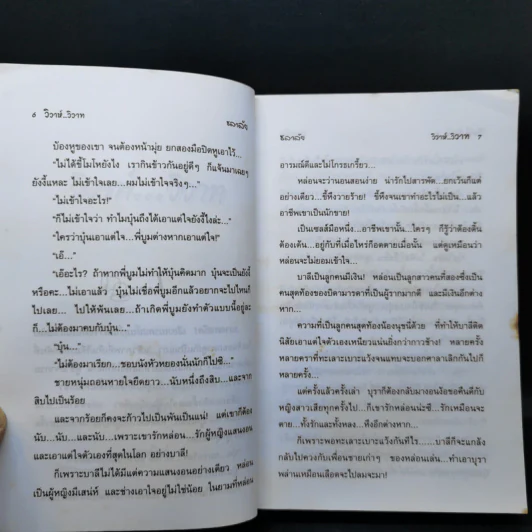 ๖ วิวาห์...วิวาท
บ้องหูของเขา จนต้องหน้ามุ่ย ยกสองมือปิดหูเอาไว้...
"ไม่ได้ขี้โมโหยังไง เรากินข้าวกันอยู่ดีๆ ก็แจ้นมาเฉยๆ
ยังงี้แหละ ไม่เข้าใจเลย...ผมไม่เข้าใจจริงๆ..."
"ไม่เข้าใจอะไร!"
"ก็ไม่เข้าใจว่า ทำไมบุ๋นถึงได้เอาแต่ใจยังงี้ไงล่ะ..."
"ใครว่าบุ๋นเอาแต่ใจ...พี่บูมต่างหากเอาแต่ใจ!"
"เอ๊..."
"เอ๊อะไร? ถ้าหากพี่บูมไม่ทำให้บุ๋นคิดมาก บุ๋นจะเป็นยังงี้
หรือคะ...ไม่เอาแล้ว บุ๋นไม่เชื่อพี่บูมอีกแล้วอยากจะไปไหนก็
ไปเลย... ไปให้พ้นเลย... ถ้าเกิดพี่บูมยังทำตัวแบบนี้อยู่ละ
ก็...ไม่ต้องมาคบกับบุ๋น..."
"บุ๋น..."
"ไม่ต้องมาเรียก...ชอบนังหัวหยองนั่นนักก็ไปซี..."
ชายหนุ่มถอนหายใจยืดยาว...นับหนึ่งถึงสิบ...และจาก
สิบไปเป็นร้อย
และจากร้อยก็คงจะก้าวไปเป็นพันเป็นแน่! แต่เขาก็ต้อง
นับ...นับ...และนับ...เพราะเขารักหล่อน...รักผู้หญิงแสนงอน
และเอาแต่ใจตัวเองที่สุดในโลก อย่างบาลี!
ก็เพราะบาลีไม่ได้มีแต่ความแสนงอนอย่างเดียว หล่อน
เป็นผู้หญิงมีเสน่ห์ และช่างเอาใจอยู่ไม่ใช่น้อย ในยามที่หล่อน
วิวาห์...วิวาท 7
อารมณ์ดีและไม่โกรธเกรี้ยว...
หล่อนจะว่านอนสอนง่าย น่ารักไปสารพัด...ยกเว้นก็แต่
อย่างเดียว...ขี้หึงวายร้าย! ขี้หึงจนเขาทำอะไรไม่เป็น...แล้ว
อาชีพเขาเป็นนักขาย!
เป็นเซลส์มือหนึ่ง...อาชีพเขานั้น...ใครๆ ก็รู้ว่าต้องตื้น
ต้องเต้น...อยู่กับที่เมื่อไหร่ก็อดตายเมื่อนั้น แต่ดูเหมือนว่า
หล่อนจะไม่ยอมเข้าใจ...
บาลีเป็นลูกคนมีเงิน! หล่อนเป็นลูกสาวคนที่สองซึ่งเป็น
คนสุดท้องของบิดามารดาที่เป็นผู้รากมากดี และมีเงินอีกต่าง
หาก...
ความที่เป็นลูกคนสุดท้องน้องนุชนี่ด้วย ที่ทำให้บาลีติด
นิสัยเอาแต่ใจตัวเองเหนียวแน่นยิ่งกว่ากาวช้าง! หลายครั้ง
หลายคราที่ทะเลาะเบาะแว้งจนแทบจะบอกศาลาเลิกกันไปก็
หลายครั้ง...
แต่ครั้งแล้วครั้งเล่า บุราก็ต้องกลับมางอนง้อขอคืนดีกับ
หญิงสาวเสียทุกครั้งไป...ก็เขารักหล่อนน่ะซี...รักเหมือนจะ
ตาย...ทั้งรักและทั้งหลง...หึงอีกต่างหาก...
ก็เพราะพอทะเลาะเบาะแว้งกันทีไร......บาลีก็จะแกล้ง
กลับไปควงกับเพื่อนชายเก่าๆ ของหล่อนเล่น...ทำเอาบุรา
พล่านเหมือนเลือดจะไปลมจะมา!